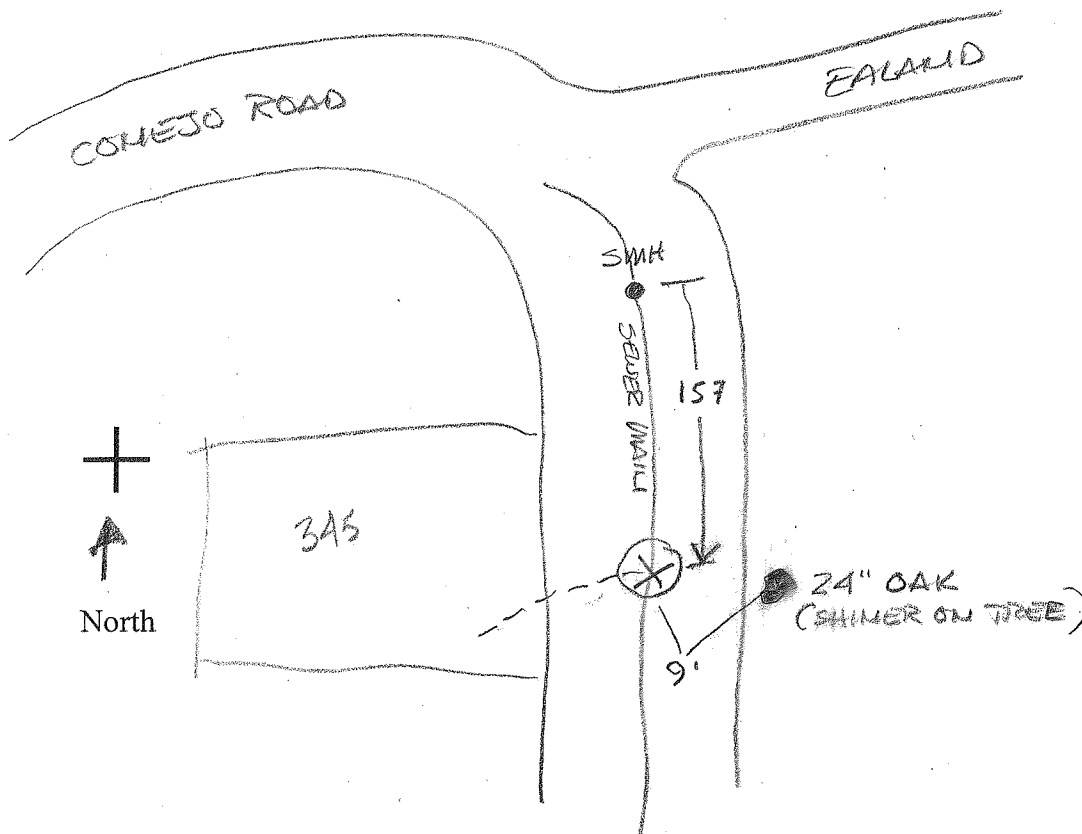 COMEJO ROAD
EALAND
SMH
SEWER MAIN
157
345
North
24" OAK
(SHINER ON TREE)
9'